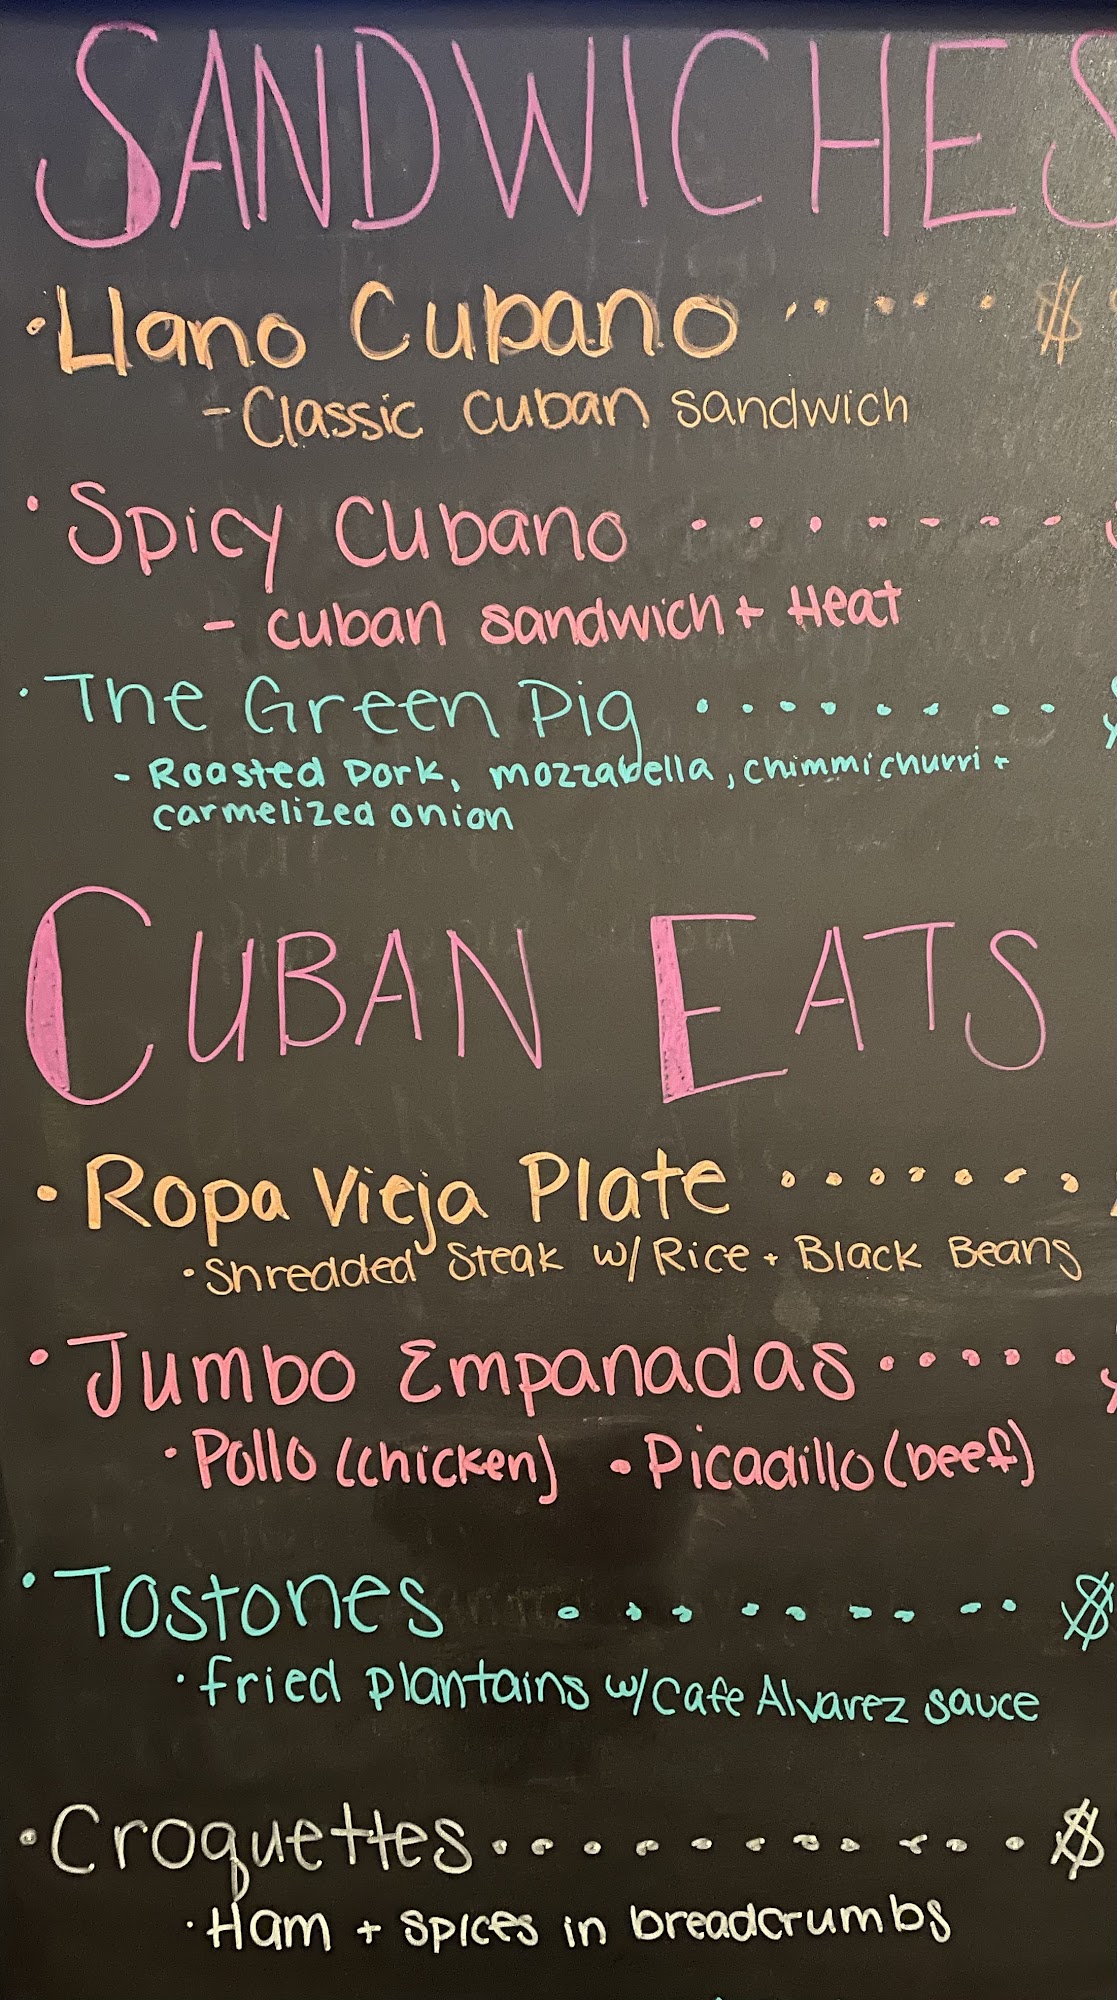 SANDWICHES
· Llano Cubano ....... $
- Classic Cuban sandwich
· Spicy Cubano .......
- Cuban sandwich + Heat
· The Green Pig ........
- Roasted Pork, mozzabella, chimmichurri +
carmelized onion
CUBAN EATS
· Ropa Vieja Plate .......
· Shredded Steak w/ Rice + Black Beans
· Jumbo Empanadas .....
· Pollo (chicken) · Picadillo (beef)
· Tostones ......... $
· fried plantains w/ Cafe Alvarez sauce
· Croquettes .......... $
· Ham + spices in breadcrumbs